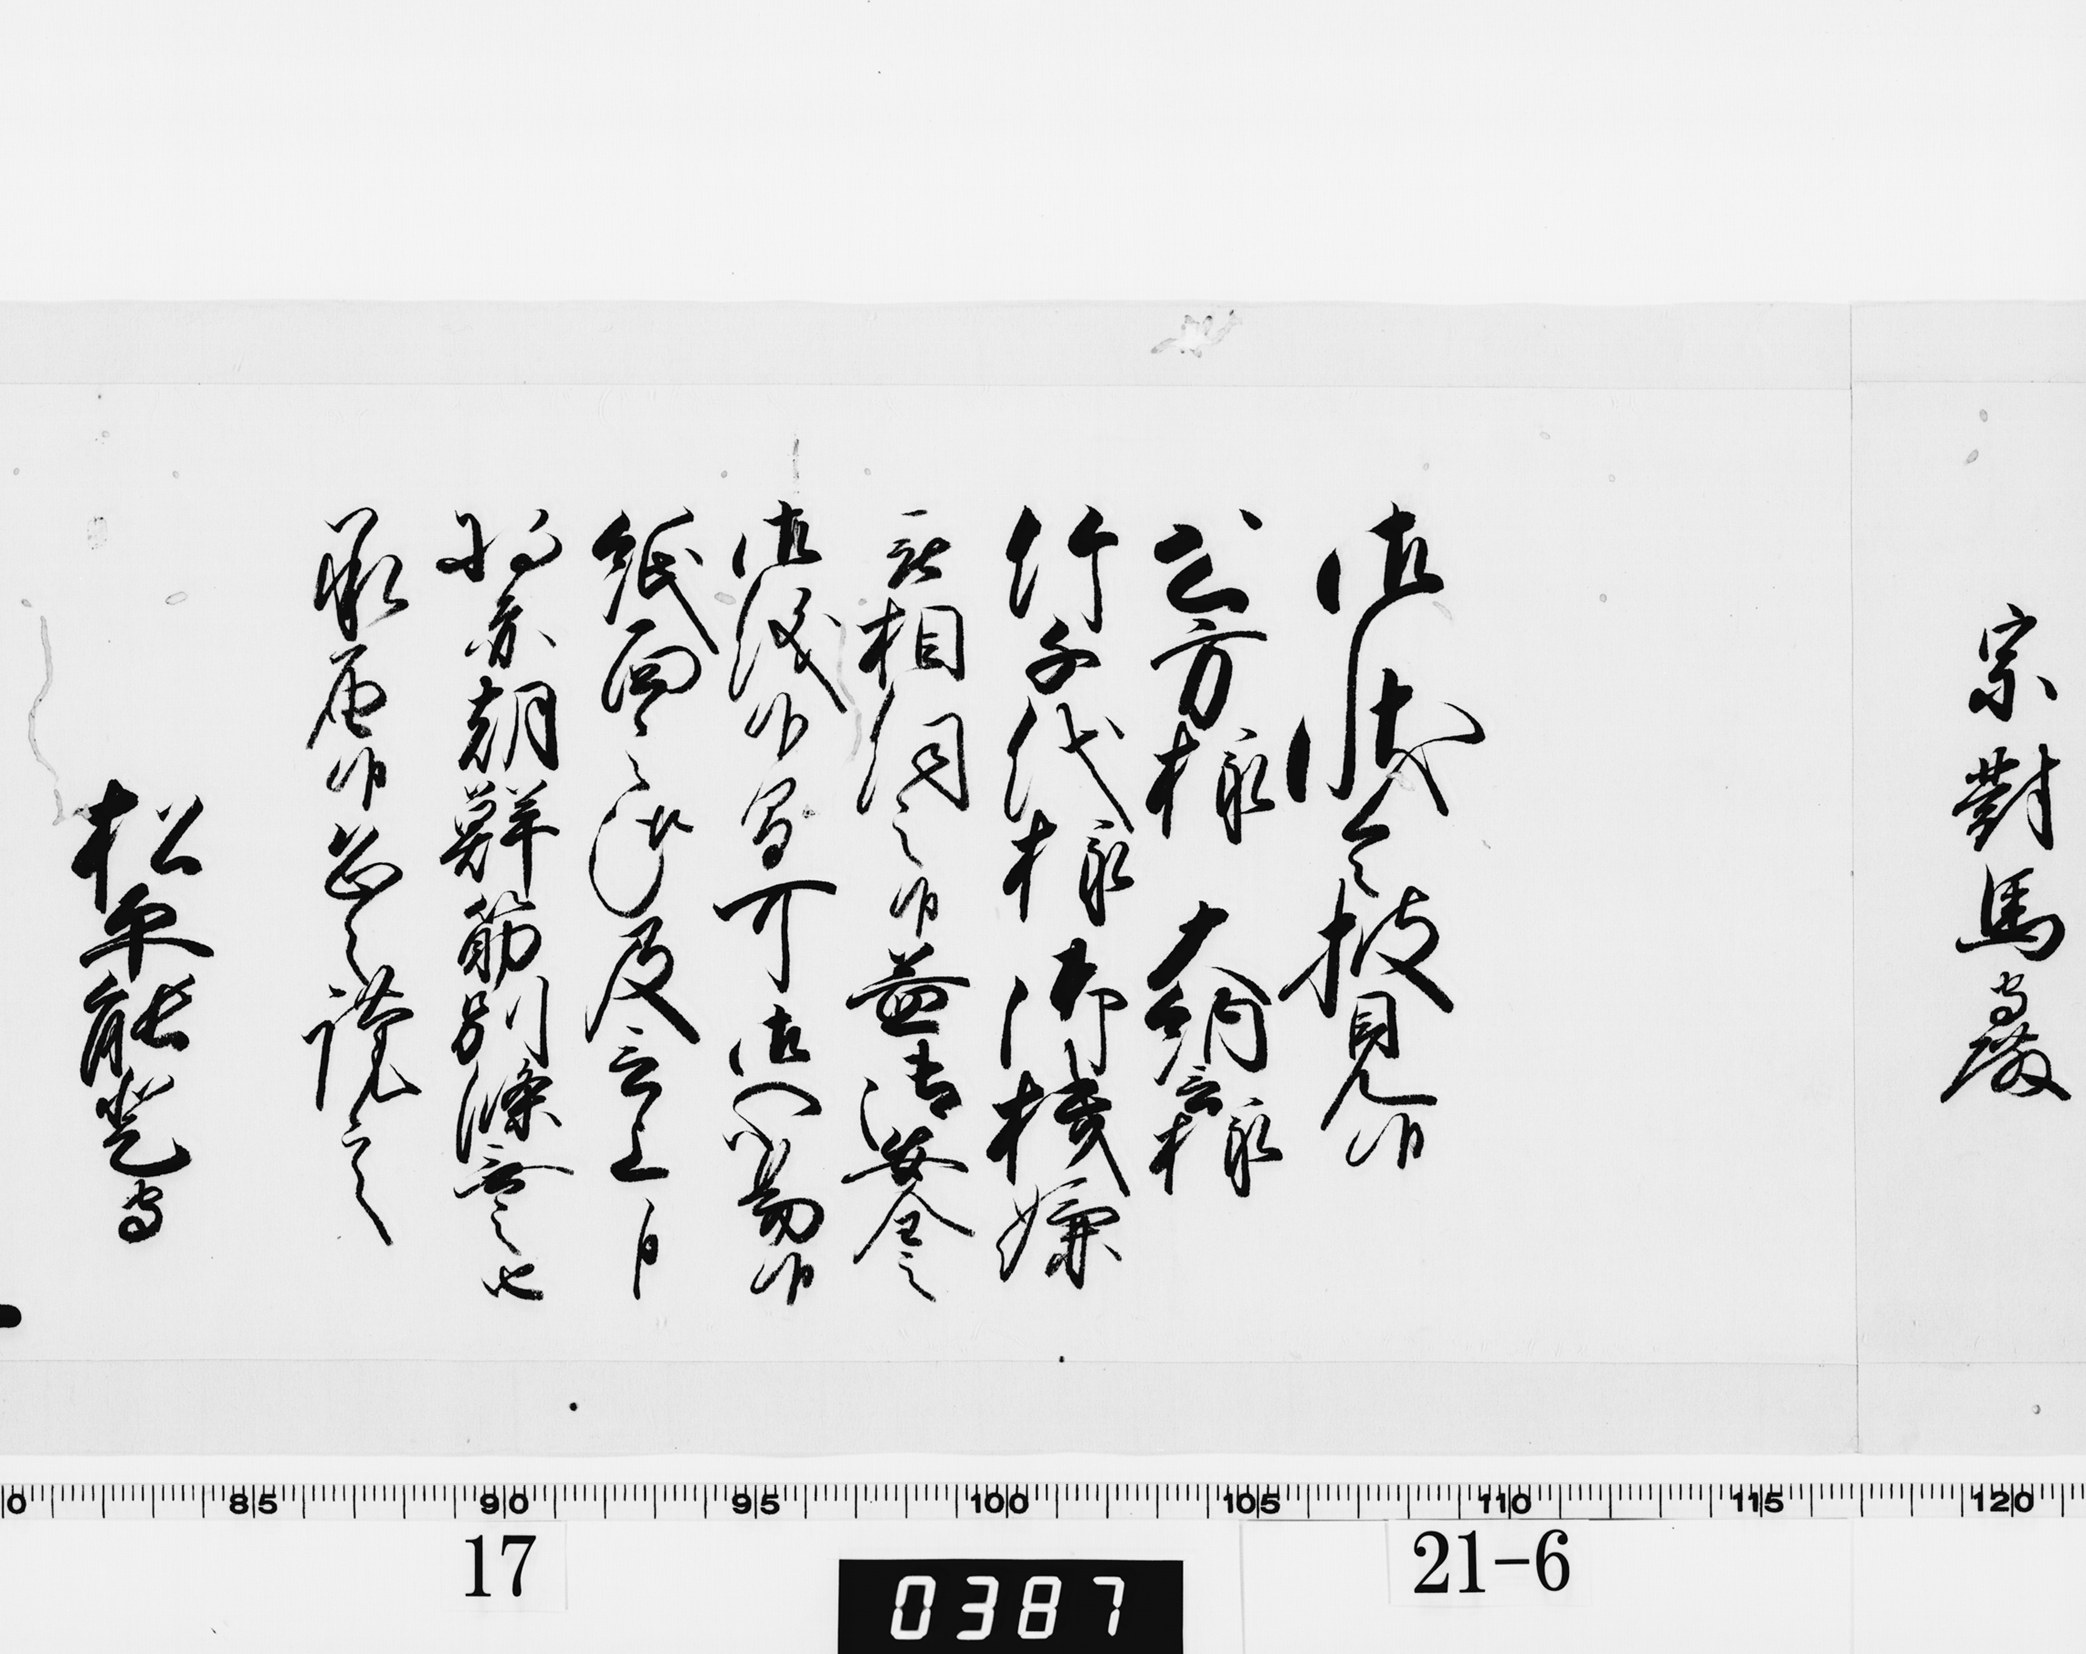 宗對馬守殿
御状令披見候
公方様　大納言様
竹千代様御機嫌
被相伺之候益御安全之
御儀候間可御心易候
紙面之趣及言上候
将亦朝鮮筋別條無之也
承届候恐々謹言
松平能登守
85 90 95 100 105 110 115 120
17
0387
21-6